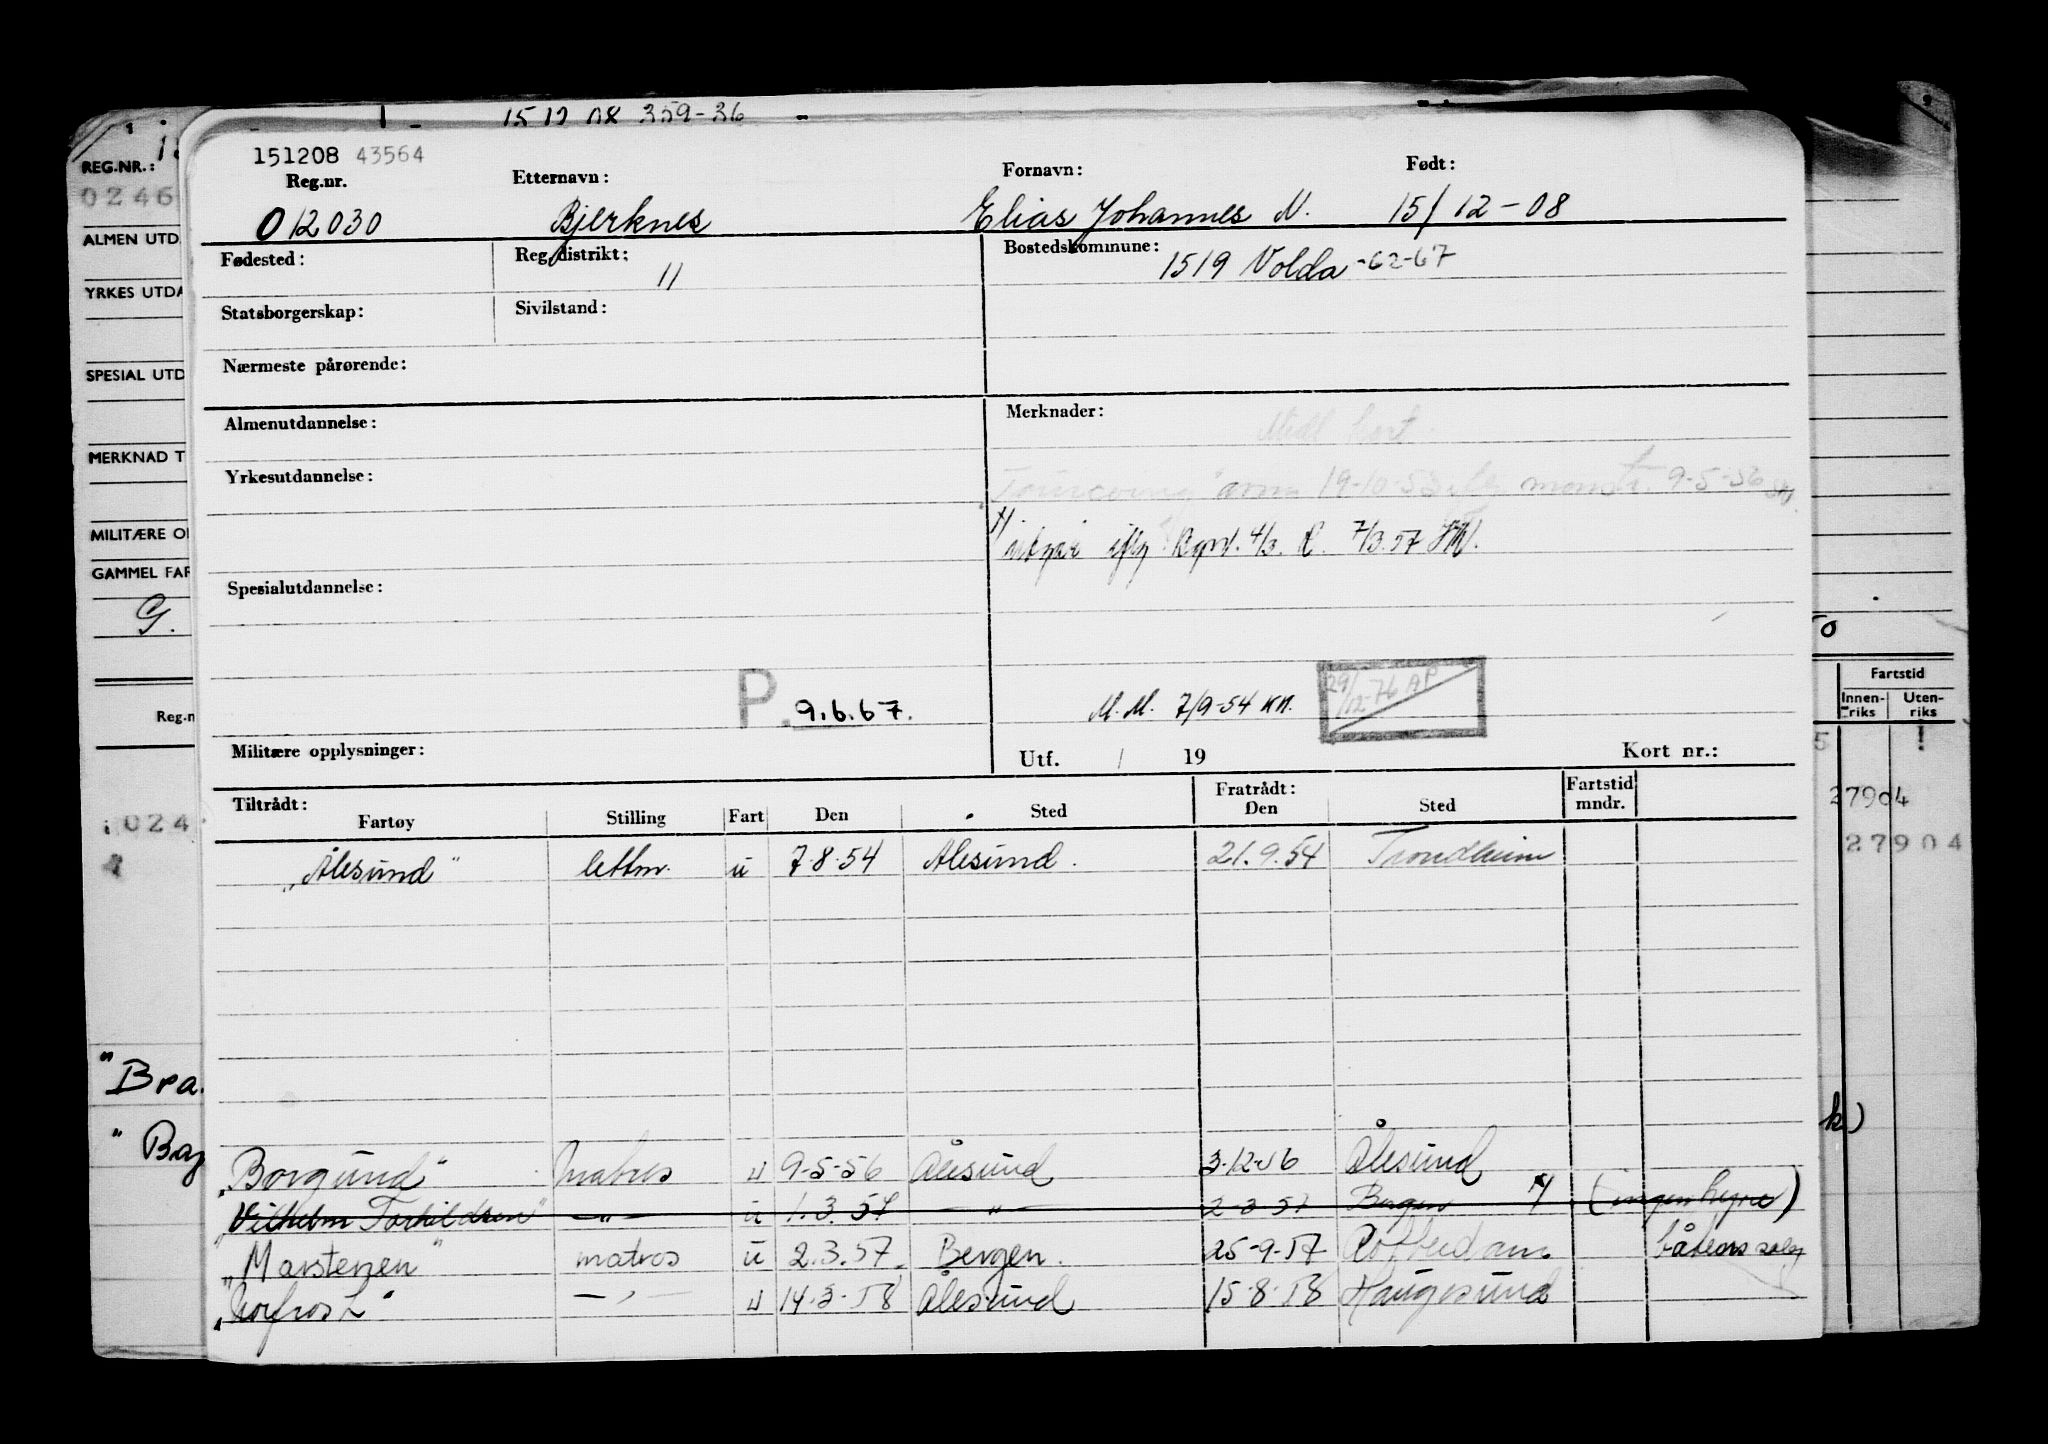 15 12 08 359-36
151208 43564
REG.NR.:
Reg.nr. Etternavn: Fornavn: Født:
0246
012030 Bjerknes Elias Johannes N. 15/12-08
ALMEN UTD.
Fødested: Reg.distrikt: 11 Bostedskommune: 1519 Volda -62-67
YRKES UTDA
Statsborgerskap: Sivilstand:
Nærmeste pårørende:
SPESIAL UTD
Almenutdannelse: Merknader:
Midl kort.
MERKNAD T
Yrkesutdannelse:
19-10-55 mønstr. 9-5-56
MILITÆRE O
4/3. 7/3.57
GAMMEL FAR
Spesialutdannelse:
G.
Fartstid
Innen-riks Uten-riks
P. 9.6.67. M.M. 7/9-54 KN. 29/12-76 AP
Reg.n
Militære opplysninger: Utf. / 19 Kort nr.:
Tiltrådt: Fratrådt: Fartstid mndr.
Fartøy Stilling Fart Den Sted Den Sted
27904
024
27904
"Ålesund" lettm. u 7-8-54 Ålesund. 21.9.54 Trondheim
"Bra.
"Borgund" Matros u 9-5-56 Ålesund 3-12-56 Ålesund
"Vilhelm Torkildsen" -"- u 1.3.57 -"- 2-3-57 Bergen (ingen hyre)
"Marstenen" matros u 2.3.57. Bergen. 25-9-57 Rotterdam båtens salg
"Norfrost" -"- u 14-3-58 Ålesund 15-8-58 Haugesund